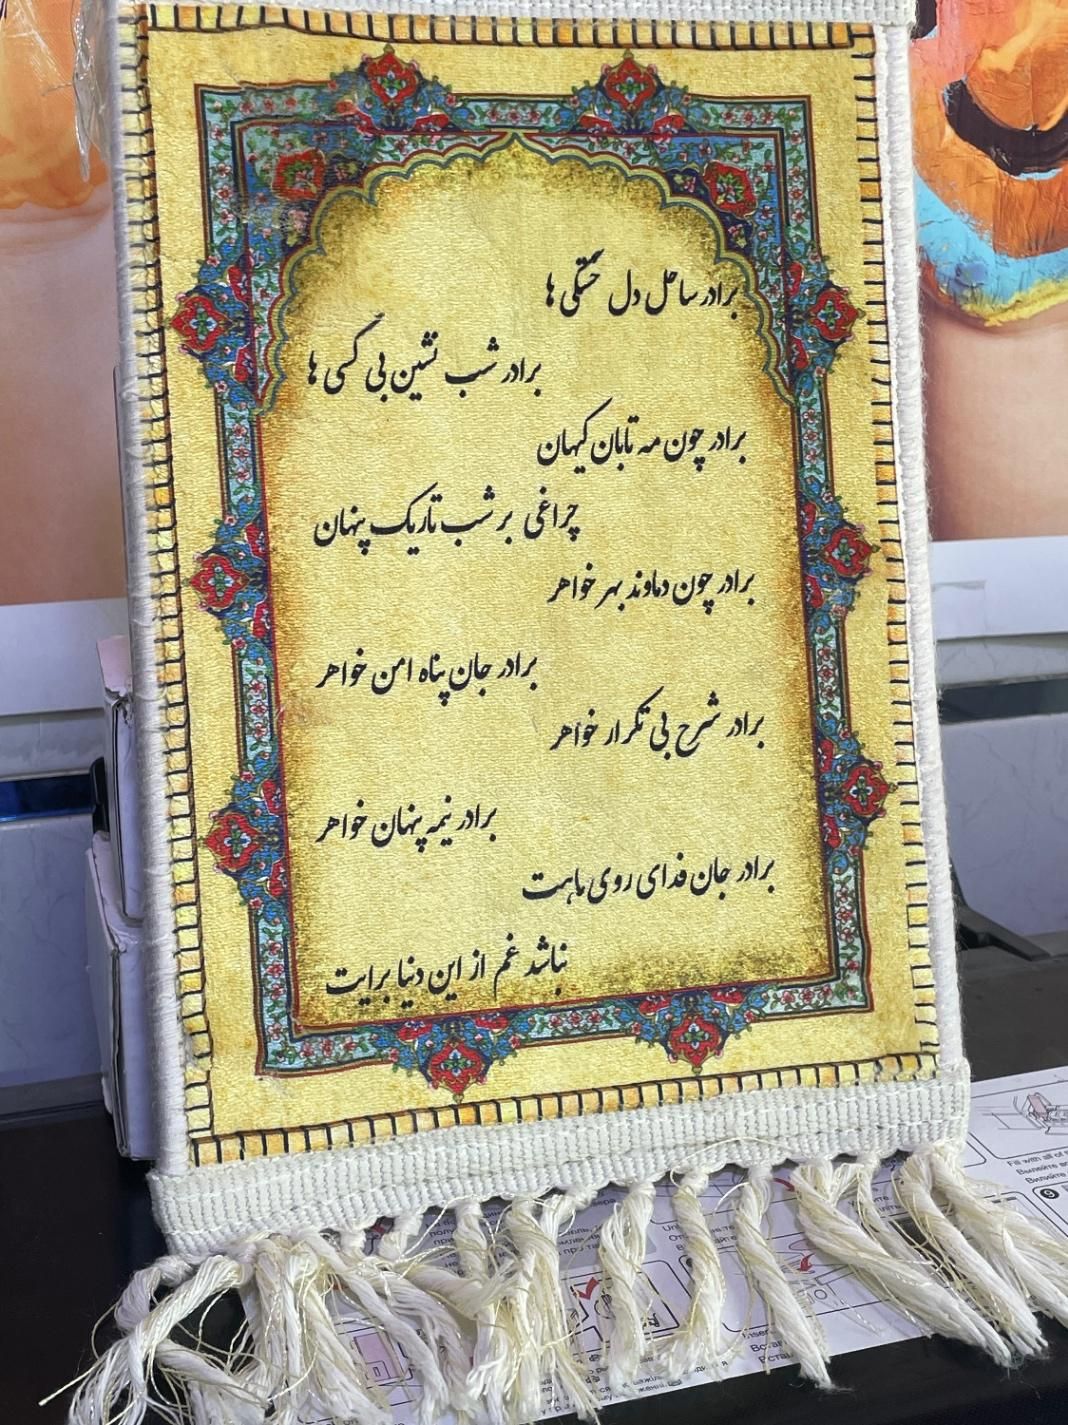 برادر ساحل دل خستگی ها
برادر شب نشین بی کسی ها
برادر چون مه تابان کیهان
چراغی بر شب تاریک پنهان
برادر چون دماوند بهر خواهر
برادر جان پناه امن خواهر
برادر شرح بی تکرار خواهر
برادر نیمه پنهان خواهر
برادر جان فدای روی ماهت
نباشد غم از این دنیا برایت
Fill with all of